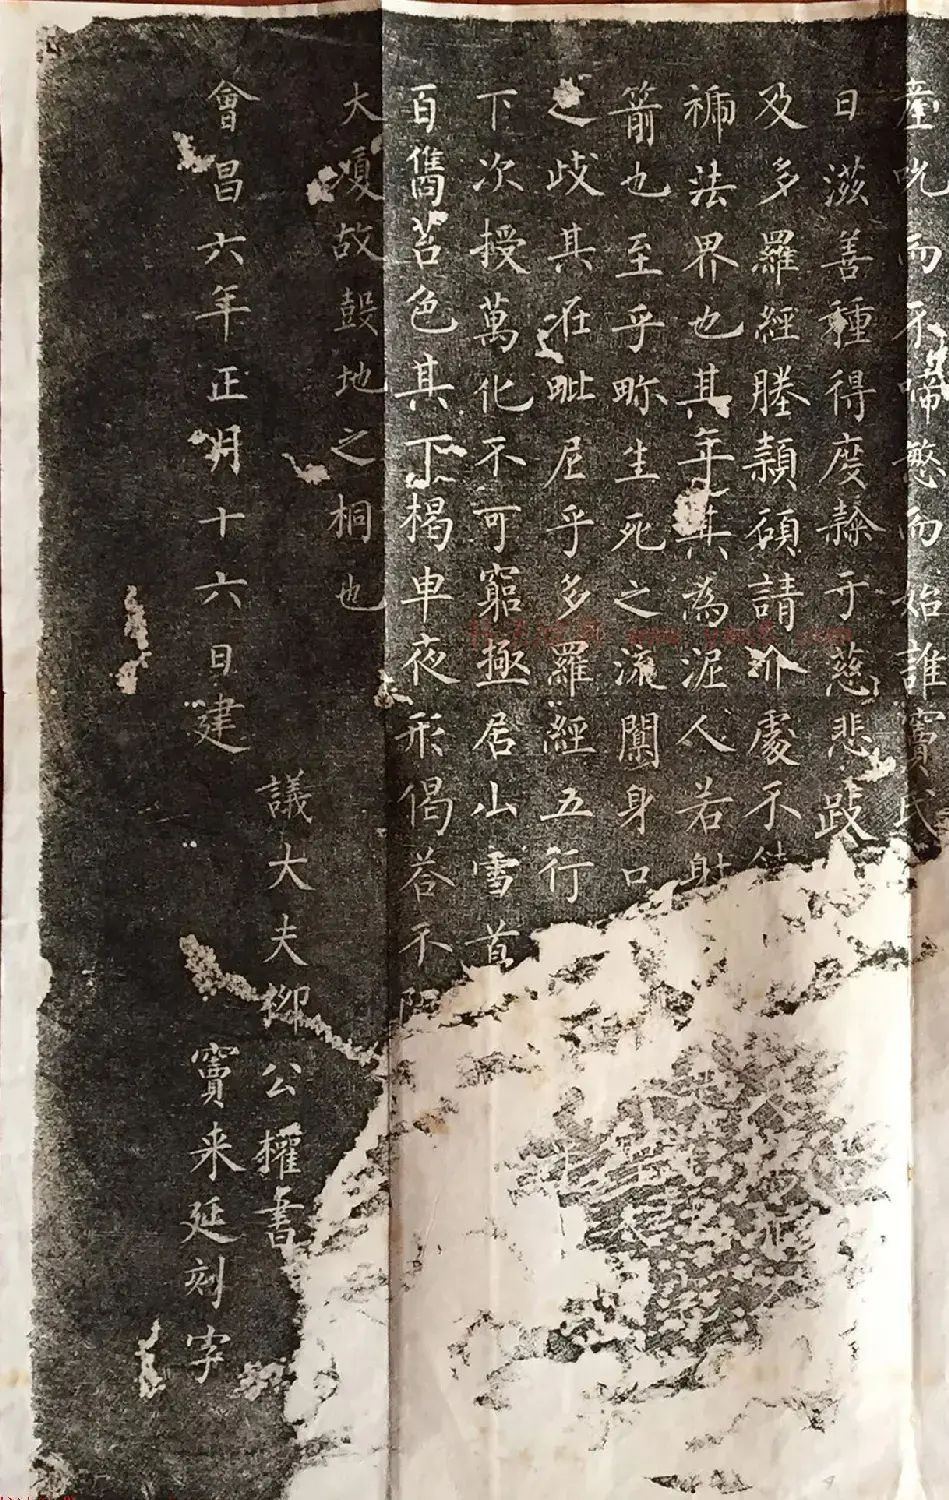 產吮而不啼憨而始誰竇氏
日滋善種得度縧于慈悲跂
及多羅經塍顙碩請處不
褫法界也其年其為泥人若射
箭也至乎眎生死之流關身口
之歧其在毗尼乎多羅經五行
下次授萬化不可窮極居山雪首
百舊苔色其下楬車夜形偈荅不
大廈故鼓地之桐也
議大夫柳公權書
會昌六年正月十六日建
竇来延刻字